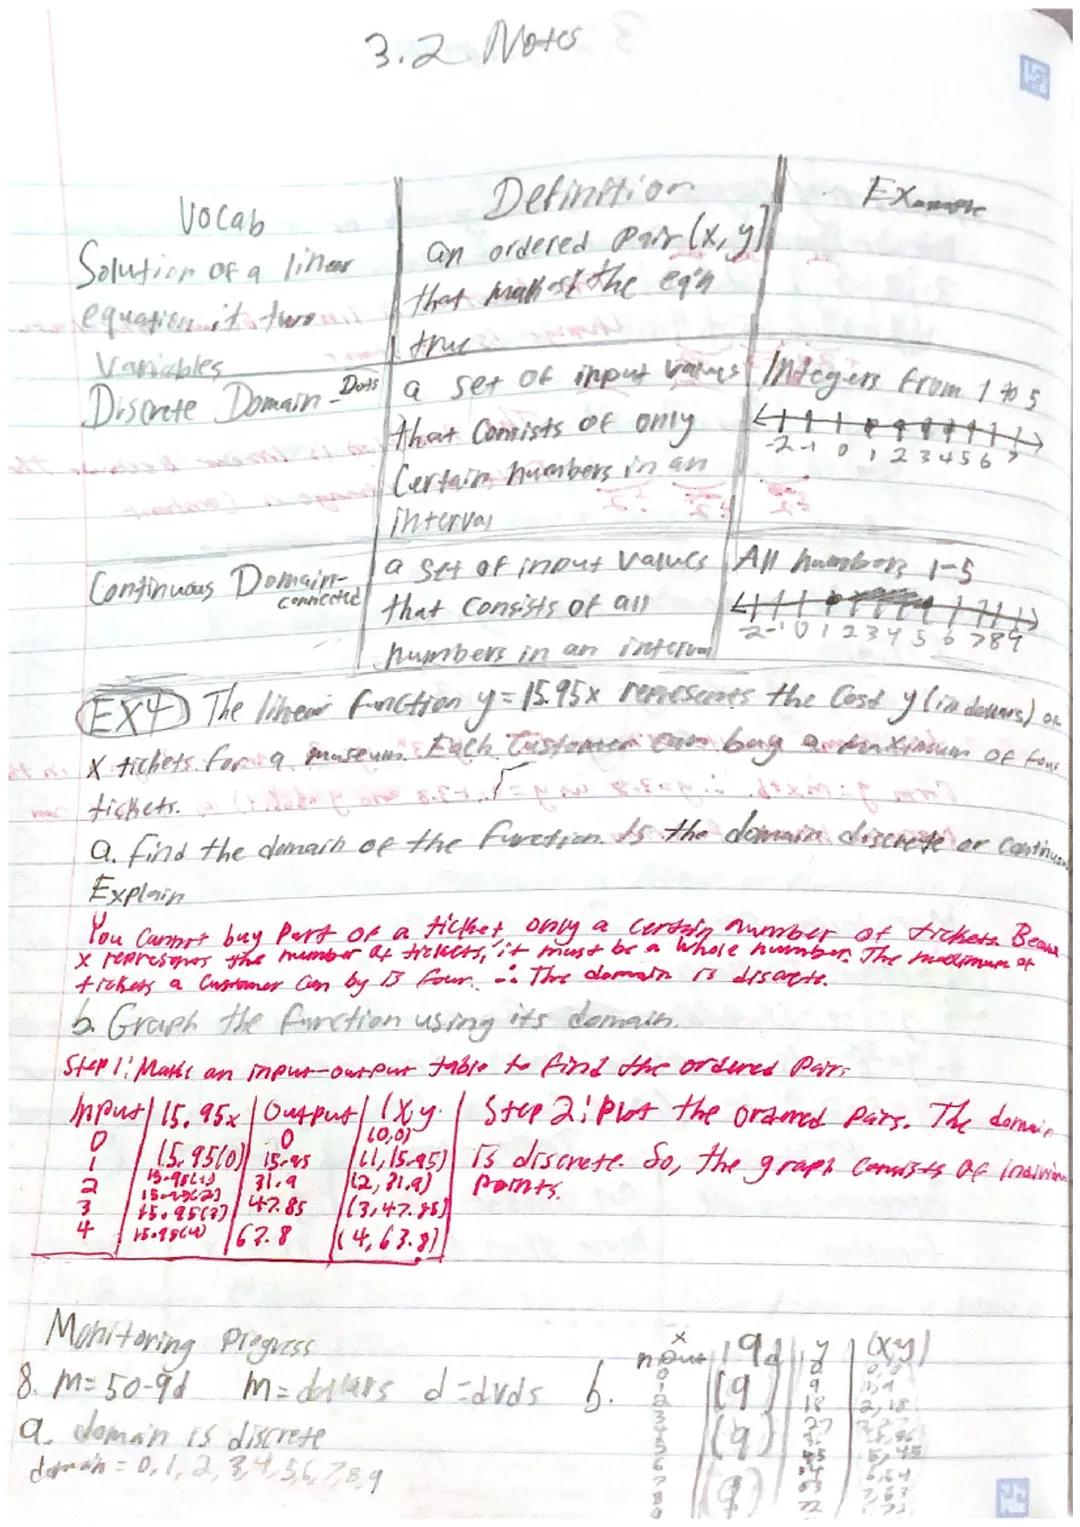 3.2 Notes
Vocab
Definition
Example
Solution of a linear
equation it two
Variables
an ordered pair (x, y)
that makes the eq'n
true
Discrete Domain - Dots
a set of input values
that consists of only
Certain numbers in an
interval
Integers from 1 to 5
-2 -1 0 1 2 3 4 5 6 7
Continuous Domain-
connected
a set of input values
that consists of all
numbers in an interval
All numbers 1-5
-2 -1 0 1 2 3 4 5 6 7 8 9
EX4 The linear function y = 15.95x represents the Cost y (in dollars) of
x tickets for a museum. Each Customer can buy a maximum of four
tickets.
a. find the domain of the function. Is the domain discrete or Continuous
Explain
You Cannot buy Part of a ticket, only a certain number of tickets. Because
x represents the number of tickets, it must be a whole number. The maximum of
tickets a Customer Can by is four. ∴ The domain is discrete.
b. Graph the function using its domain.
Step 1: Make an input-output table to find the ordered Pairs
Input | 15.95x | Output | (x, y.
0 15.95(0) 0 (0,0)
1 15.95(1) 15.95 (1, 15.95)
2 15.95(2) 31.9 (2, 31.9)
3 15.95(3) 47.85 (3, 47.85)
4 15.95(4) 63.8 (4, 63.8)
Step 2: Plot the ordered pairs. The domain
is discrete. So, the graph consists of individual
points.
Monitoring Progress
8. m = 50-9d m = dollars d = dvds
a. domain is discrete
domain = 0, 1, 2, 3, 4, 5, 6, 7, 8, 9
b.
x y (x,y)
0
9
18
27